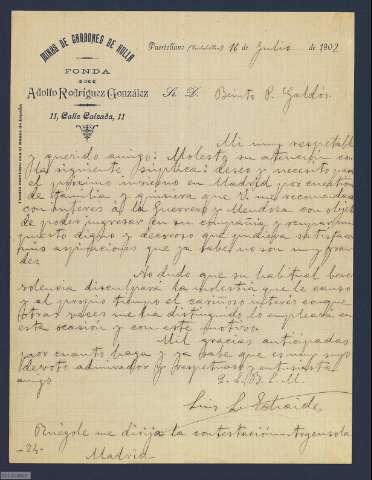 MINAS DE CARBONES DE HULLA
FONDA
DE
Adolfo Rodríguez González
11, Calle Calzada, 11
Puertollano (Ciudad-Real) 16 de Julio de 1902
Sr. D. Benito P. Galdós
Mi muy respetable
y querido amigo: Molesto su atención con
la siguiente súplica: deseo y necesito para
el próximo invierno en Madrid por cuestion
de familia y quisiera que V. me recomendase
con interes á la Guerrero y Mendoza con objeto
de poder ingresar en su compañia y ocupar un
puesto digno y decoroso que pudiera satisfacer
mis aspiraciones que ya sabe no son muy gran
des.
No dudo que su habitual bene
volencia disculpará la molestia que le causo
y al propio tiempo el cariñoso interés conque
otras veces me ha distinguido lo empleará en
esta ocasión y con este motivo.
Mil gracias anticipadas
por cuanto haga y ya sabe que es muy suyo
devoto admirador y respetuoso y entusiasta
amigo
Q. L. B. L. M.
Luis L. Estraide
Ruégole me dirija la contestación - Argensola
- 24 -
Madrid -